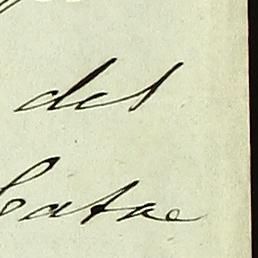 del
Catre